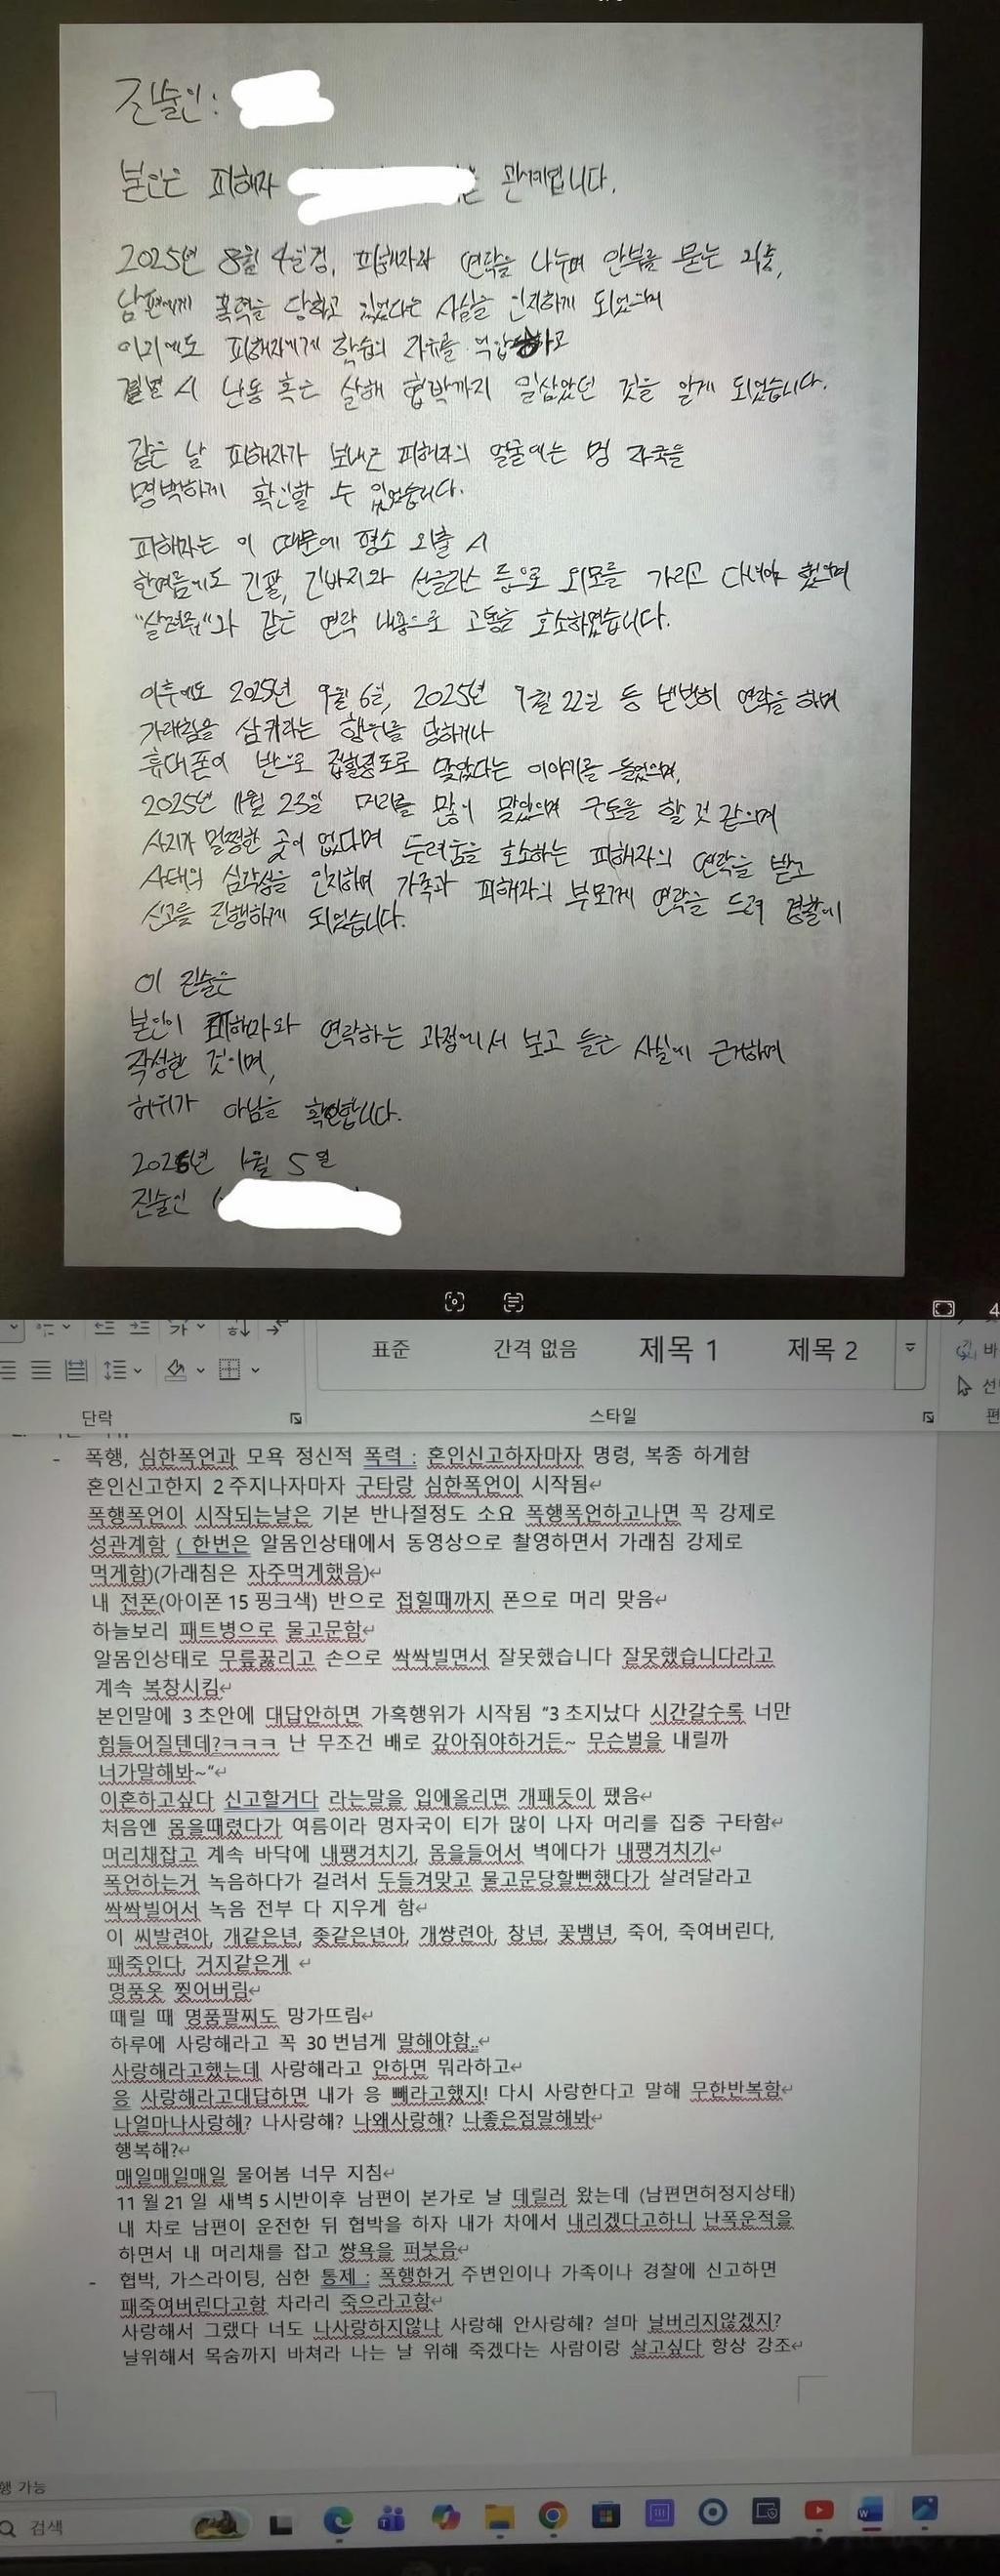 진술인:
본인은 피해자 관계입니다.
2025년 8월 4일경, 피해자와 연락을 나누며 안부를 묻는 와중,
남편에게 폭력을 당하고 있었다는 사실을 인지하게 되었으며
이외에도 피해자에게 학습의 자유를 억압하고
결별 시 난동 혹은 살해 협박까지 일삼았던 것을 알게 되었습니다.
같은 날 피해자가 보내온 피해자의 얼굴에는 멍 자국을
명백하게 확인할 수 있었습니다.
피해자는 이 때문에 평소 외출 시
한여름에도 긴팔, 긴바지와 선글라스 등으로 외모를 가리고 다녀야 했으며
"살려줘"와 같은 연락 내용으로 고통을 호소하였습니다.
이후에도 2025년 9월 6일, 2025년 9월 22일 등 빈번히 연락을 하며
가래침을 삼키라는 행위를 당하거나
휴대폰이 반으로 접힐정도로 맞았다는 이야기를 들었으며,
2025년 11월 23일 머리를 많이 맞았으며 구토를 할 것 같으며
사지가 멀쩡한 곳이 없다며 두려움을 호소하는 피해자의 연락을 받고
사태의 심각성을 인지하며 가족과 피해자의 부모께 연락을 드려 경찰에
신고를 진행하게 되었습니다.
이 진술은
본인이 피해자와 연락하는 과정에서 보고 들은 사실에 근거하여
작성한 것이며,
허위가 아님을 확인합니다.
2026년 1월 5일
진술인 (
4
가
표준 간격 없음 제목 1 제목 2
바
선
단락 스타일 편
- 폭행, 심한폭언과 모욕 정신적 폭력 : 혼인신고하자마자 명령, 복종 하게함
혼인신고한지 2주지나자마자 구타랑 심한폭언이 시작됨
폭행폭언이 시작되는날은 기본 반나절정도 소요 폭행폭언하고나면 꼭 강제로
성관계함 ( 한번은 알몸인상태에서 동영상으로 촬영하면서 가래침 강제로
먹게함)(가래침은 자주먹게했음)
내 전폰(아이폰 15 핑크색) 반으로 접힐때까지 폰으로 머리 맞음
하늘보리 패트병으로 물고문함
알몸인상태로 무릎꿇리고 손으로 싹싹빌면서 잘못했습니다 잘못했습니다라고
계속 복창시킴
본인말에 3초안에 대답안하면 가혹행위가 시작됨 "3초지났다 시간갈수록 너만
힘들어질텐데?ㅋㅋㅋ 난 무조건 배로 갚아줘야하거든~ 무슨벌을 내릴까
너가말해봐~"
이혼하고싶다 신고할거다 라는말을 입에올리면 개패듯이 팼음
처음엔 몸을때렸다가 여름이라 멍자국이 티가 많이 나자 머리를 집중 구타함
머리채잡고 계속 바닥에 내팽겨치기, 몸을들어서 벽에다가 내팽겨치기
폭언하는거 녹음하다가 걸려서 두들겨맞고 물고문당할뻔했다가 살려달라고
싹싹빌어서 녹음 전부 다 지우게 함
이 씨발련아, 개같은년, 좆같은년아, 개썅련아, 창년, 꽃뱀년, 죽어, 죽여버린다,
패죽인다, 거지같은게
명품옷 찢어버림
때릴 때 명품팔찌도 망가뜨림
하루에 사랑해라고 꼭 30번넘게 말해야함..
사랑해라고했는데 사랑해라고 안하면 뭐라하고
응 사랑해라고대답하면 내가 응 빼라고했지! 다시 사랑한다고 말해 무한반복함
나얼마나사랑해? 나사랑해? 나왜사랑해? 나좋은점말해봐
행복해?
매일매일매일 물어봄 너무 지침
11월 21일 새벽 5시반이후 남편이 본가로 날 데릴러 왔는데 (남편면허정지상태)
내 차로 남편이 운전한 뒤 협박을 하자 내가 차에서 내리겠다고하니 난폭운적을
하면서 내 머리채를 잡고 썅욕을 퍼붓음
- 협박, 가스라이팅, 심한 통제 : 폭행한거 주변인이나 가족이나 경찰에 신고하면
패죽여버린다고함 차라리 죽으라고함
사랑해서 그랬다 너도 나사랑하지않냐 사랑해 안사랑해? 설마 날버리지않겠지?
날위해서 목숨까지 바쳐라 나는 날 위해 죽겠다는 사람이랑 살고싶다 항상 강조
행 가능
검색